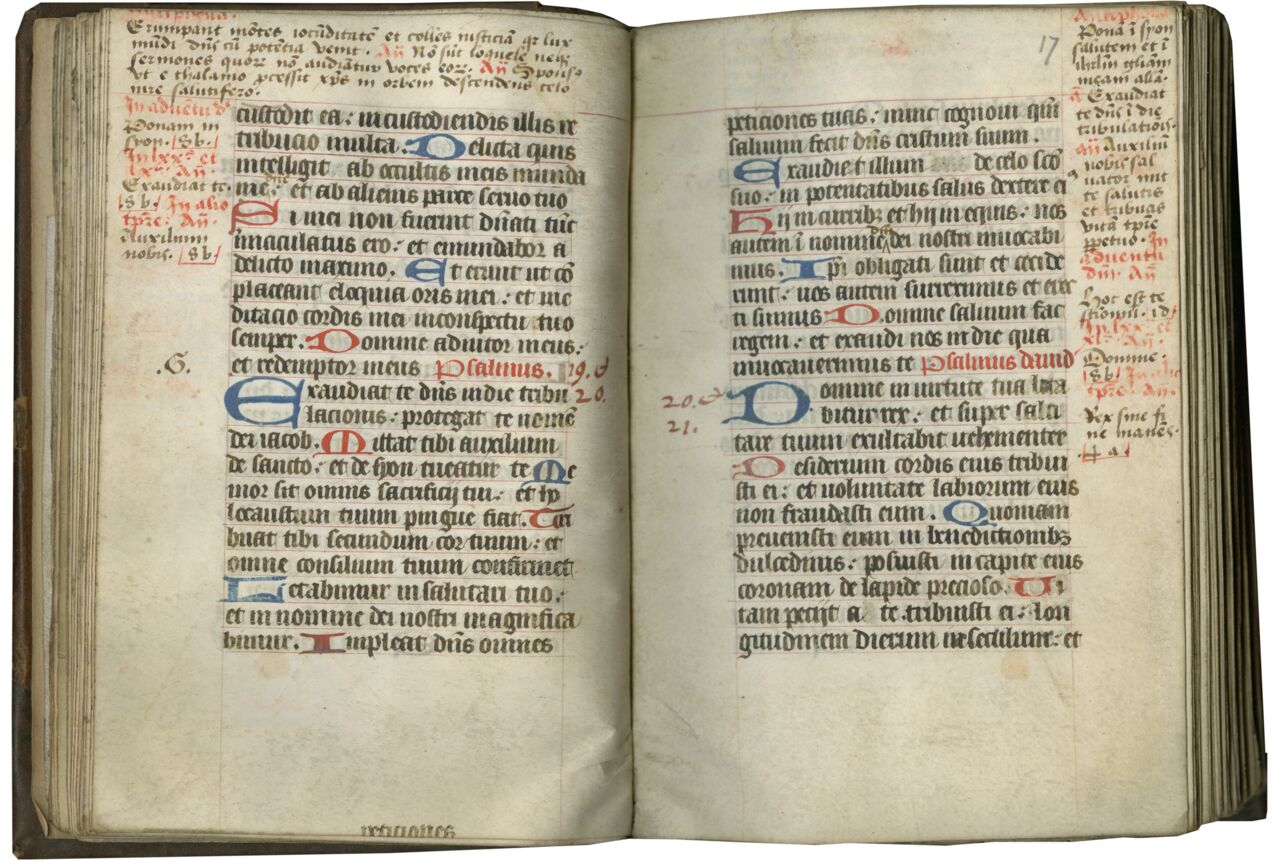 Erumpant mõtes iocũditatẽ et colles iusticiã qr lux
mũdi dñs cũ potẽtia venit. Añ Nõ sũt loquele neqꝫ
sermones quorꝝ nõ audiãtur voces eorꝝ. Añ Spons⁹
vt e thalamo ꝓcessit xp̃s in orbem descendens celo
iure salutifero.
In aduẽtu dñi
Ponam in
syon. 8 b.
In lxxª et
xlª. Añ.
Exaudiat te.
8 b. In alio
tp̃re. Añ.
Auxilium
nobis. 8 b.
custodit ea: in custodiendis illis re
tribucio multa. Delicta quis
intelligit ab occultis meis munda
me: et ab alienis parce seruo tuo
Si mei non fuerint dñati tũc
inmaculatus ero: et emundabor a
delicto maximo. Et erunt ut cõ
placeant eloquia oris mei: et me
ditacio cordis mei inconspectu tuo
semper. Domine adiutor meus:
et redemptor meus Psalmus. 19. et
.G.
Exaudiat te dñs indie tribu 20.
lacionis: protegat te nomẽ
dei iacob. Mittat tibi auxilium
de sancto: et de syon tueatur te Me
mor sit omnis sacrificij tui: et ho
locaustum tuum pingue fiat. Tri
buat tibi secundum cor tuum: et
omne consilium tuum confirmet
Letabimur in salutari tuo:
et in nomine dei nostri magnifica
bimur. Impleat dñs omnes
peticiones
17
peticiones tuas: nunc cognoui qm̃
saluum fecit dñs cristum suum.
Exaudiet illum de celo scõ
suo: in potentatibus salus dextere ei⁹
Hij in curribꝫ et hij in equis: nos
autem ĩ nomine dñi dei nostri inuocabi
mus. Ipi obligati sunt et cecide
runt: nos autem surreximus et erec
ti sumus Domine saluum fac
regem: et exaudi nos in die qua
inuocauerimus te Psalmus dauid
20. et
21.
Domine in uirtute tua leta
bitur rex: et super salu
tare tuum exultabit uehementer
Desiderium cordis eius tribui
sti ei: et uoluntate labiorum eius
non fraudasti eum. Quoniam
preuenisti eum in benedictionibꝫ
dulcedinis: posuisti in capite eius
coronam de lapide precioso. Vi
tam petijt a te tribuisti ei: lon
gitudinem dierum in seculum: et
Antiphona
Ponã ĩ syon
salutem et ĩ
ihrl̃m gliam
meam alla.
Añ Exaudiat
te dñs ĩ die
tribulatiois.
Añ Auxiliũ
nobis sal
uator mit
te salutis
et tribuas
vitã tp̃re
ꝑpetuo. In
aduentu
dñi. Añ
Hoc est te
stimoniũ. 1 d.
In lxxª et
xlª. Añ.
Domine.
8 b. In alio
tp̃re. Añ.
Rex sine fi
ne manẽs.
4 a.